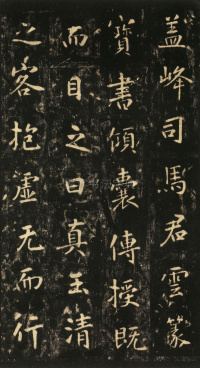 盖峰司馬君雲篆
寳書傾囊傳授既
而目之曰真玉清
之客抱虛无而行